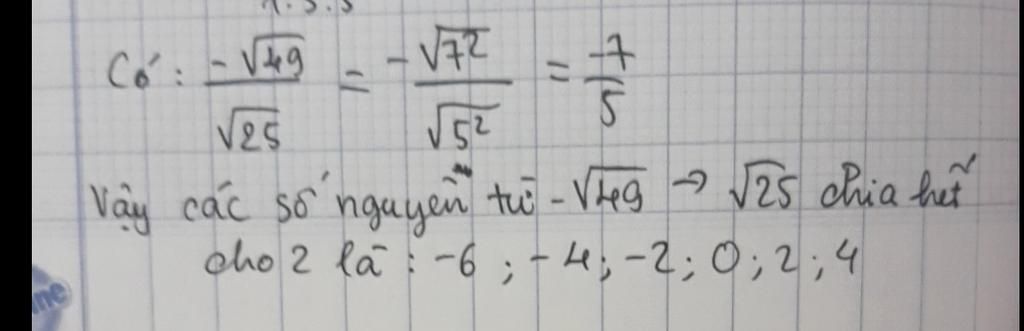 Có: \frac{-\sqrt{49}}{\sqrt{25}} = \frac{-\sqrt{7^2}}{\sqrt{5^2}} = \frac{-7}{5}
Vậy các số nguyên từ -√49 → √25 chia hết
cho 2 là : -6 ; -4 ; -2 ; 0 ; 2 ; 4